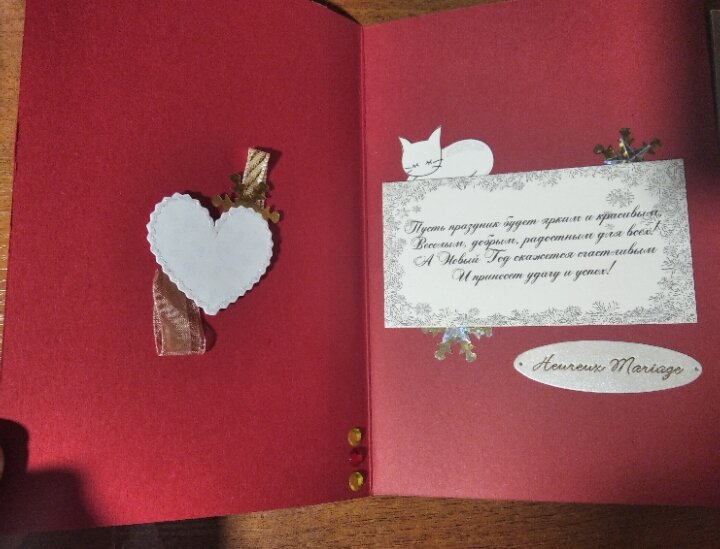 Пусть праздник будет ярким и красивым,
Веселым, добрым, радостным для всех!
А Новый Год окажется счастливым
И принесет удачу и успех!
Heureux Mariage